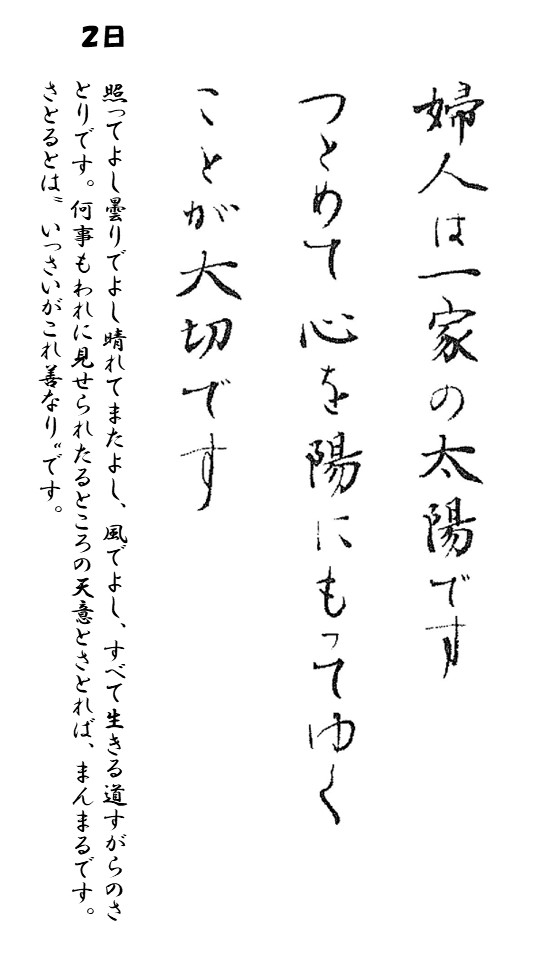 婦人は一家の太陽です
つとめて心を陽にもってゆく
ことが大切です
2日
照ってよし曇りでよし晴れてまたよし、風でよし、すべて生きる道すがらのさ
とりです。何事もわれに見せられたるところの天意とさとれば、まんまるです。
さとるとは〝いっさいがこれ善なり〟です。